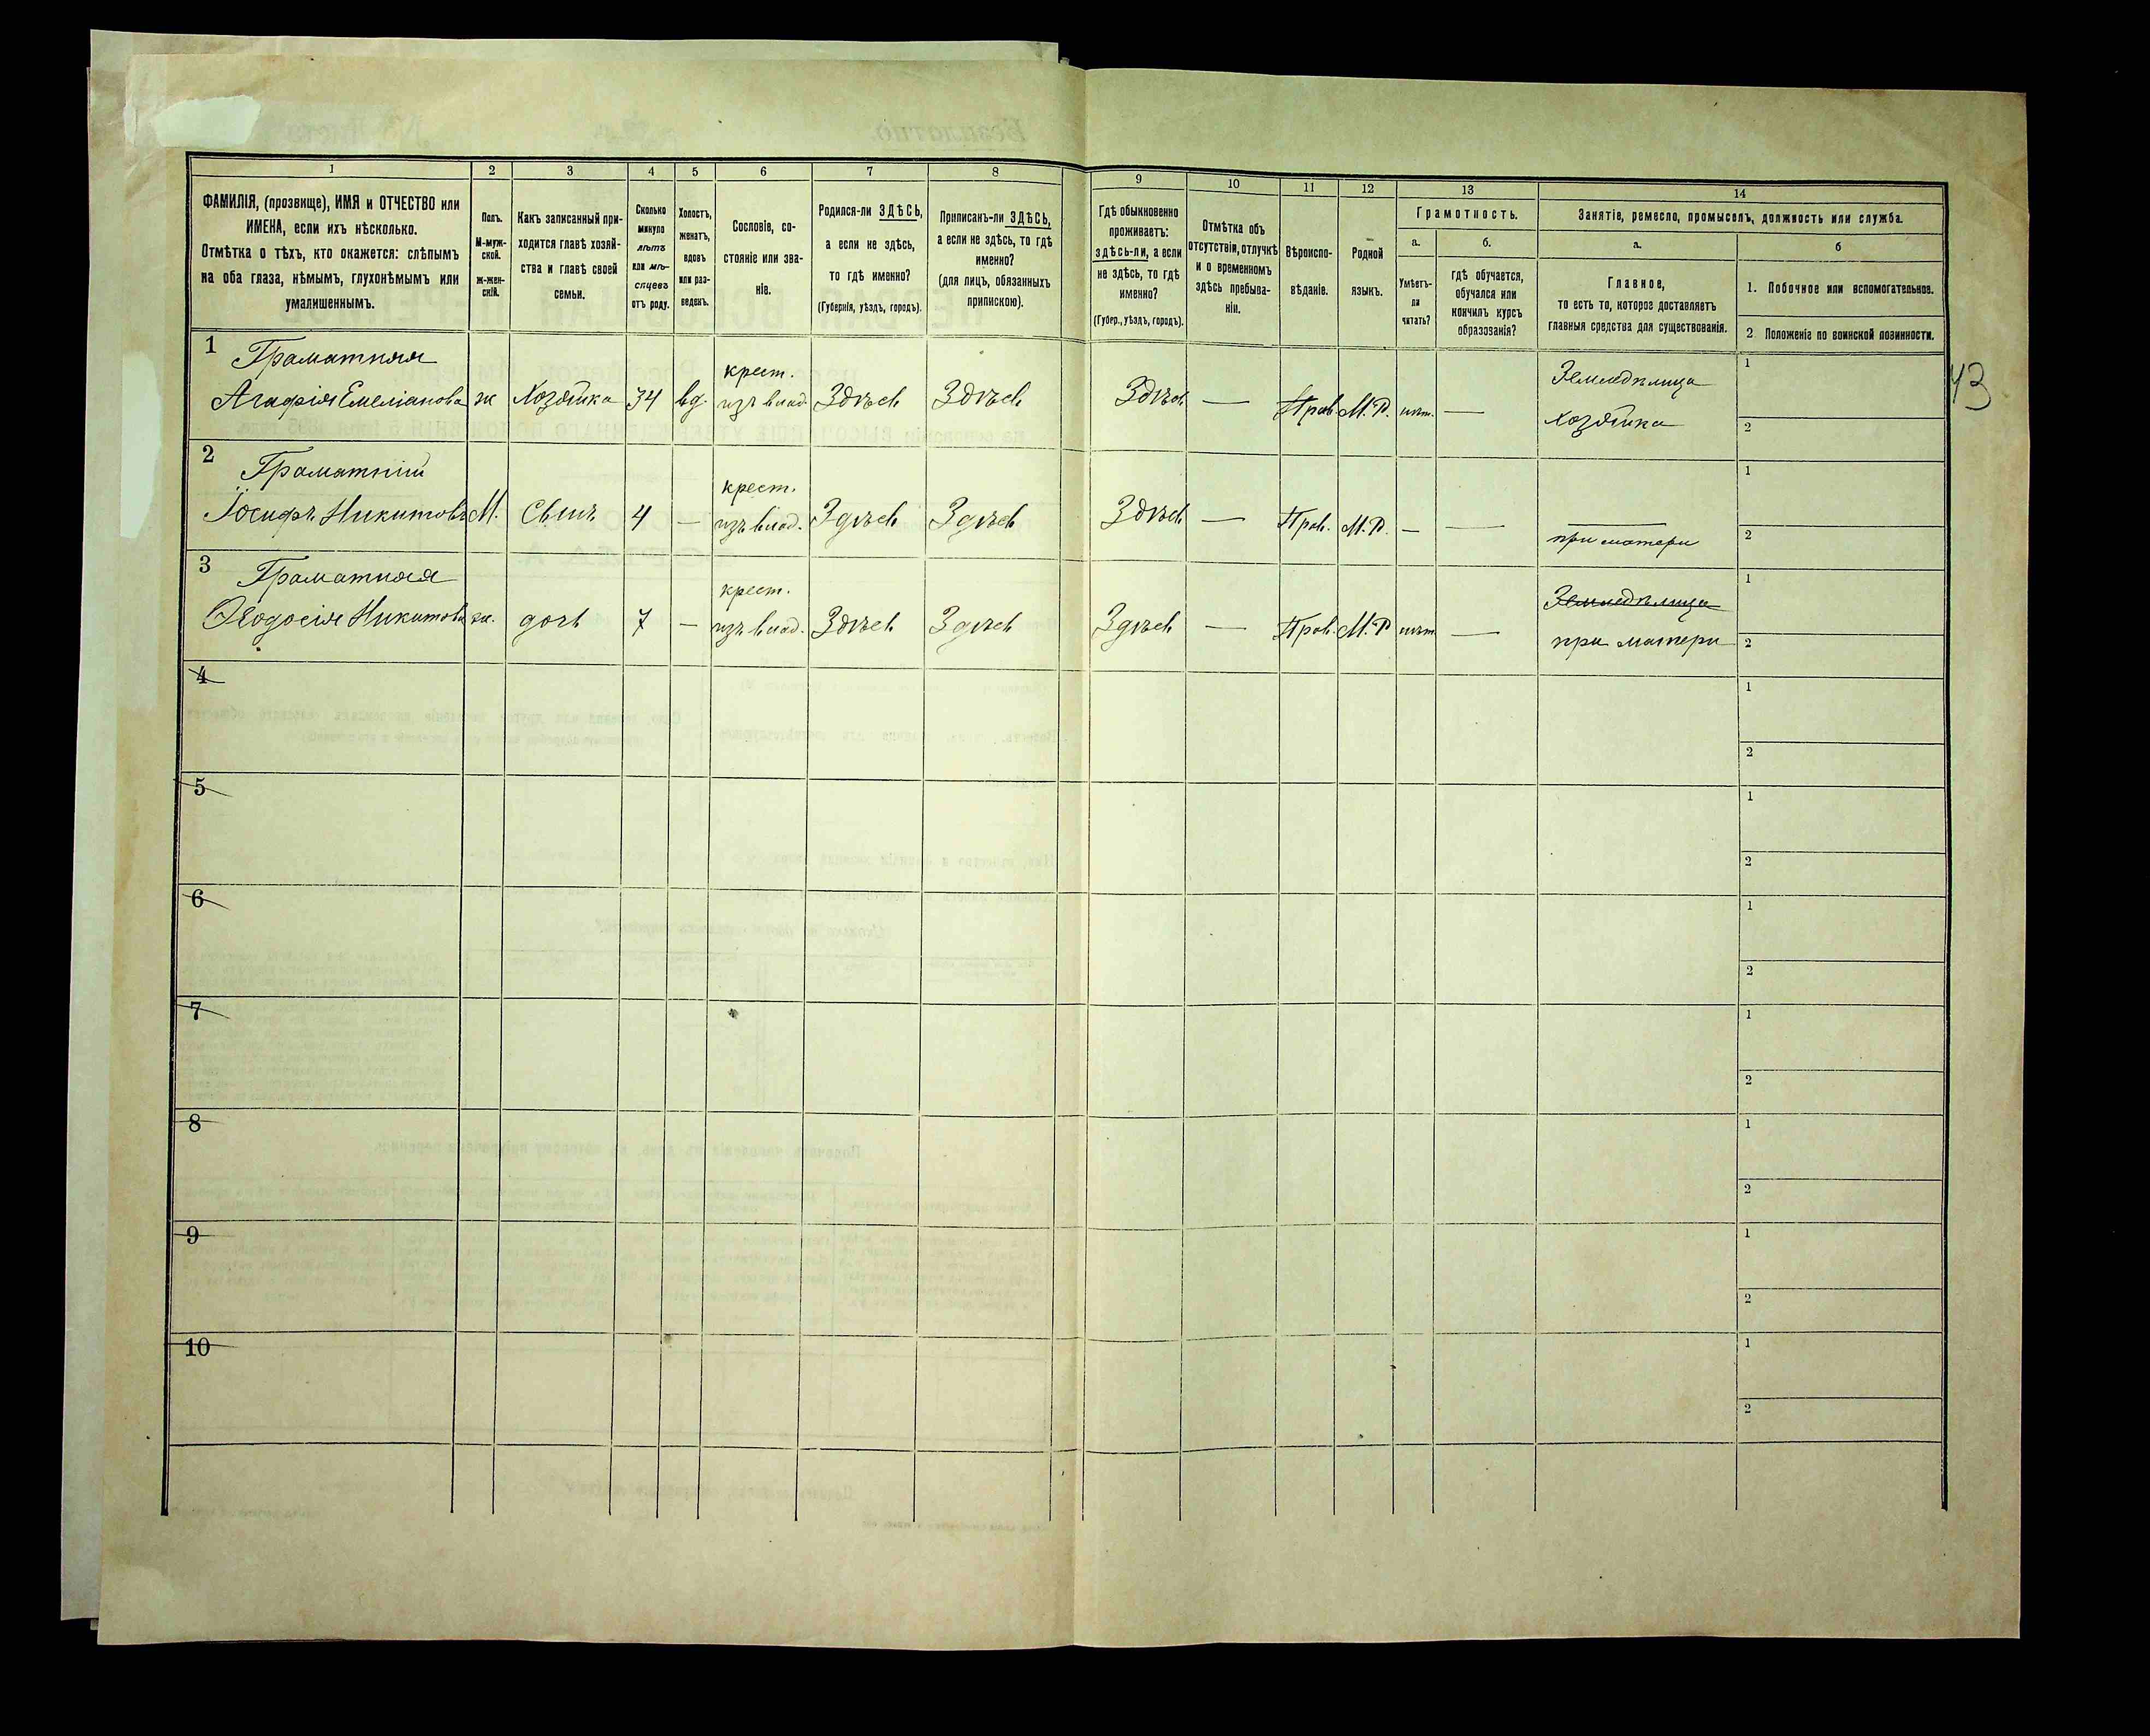 1 2 3 4 5 6 7 8 9 10 11 12 13 14
ФАМИЛІЯ, (прозвище), ИМЯ и ОТЧЕСТВО или
ИМЕНА, если ихъ нѣсколько.
Отмѣтка о тѣхъ, кто окажется: слѣпымъ
на оба глаза, нѣмымъ, глухонѣмымъ или
умалишеннымъ.
Полъ.
М-муж-
ской.
ж-жен-
скій.
Какъ записанный при-
ходится главѣ хозяй-
ства и главѣ своей
семьи.
Сколько
минуло
лѣтъ
или мѣ-
сяцевъ
отъ роду.
Холостъ,
женатъ,
вдовъ
или раз-
веденъ.
Сословіе, со-
стояніе или зва-
ніе.
Родился-ли ЗДѢСЬ,
а если не здѣсь,
то гдѣ именно?
(Губернія, уѣздъ, городъ).
Приписанъ-ли ЗДѢСЬ,
а если не здѣсь, то гдѣ
именно?
(для лицъ, обязанныхъ
припискою).
Гдѣ обыкновенно
проживаетъ:
здѣсь-ли, а если
не здѣсь, то гдѣ
именно?
(Губер., уѣздъ, городъ).
Отмѣтка объ
отсутствіи, отлучкѣ
и о временномъ
здѣсь пребыва-
ніи.
Вѣроиспо-
вѣданіе.
Родной
языкъ.
Грамотность.
а. б.
Умѣетъ-
ли
читать?
гдѣ обучается,
обучался или
кончилъ курсъ
образованія?
Занятіе, ремесло, промыселъ, должность или служба.
а. б
Главное,
то есть то, которое доставляетъ
главныя средства для существованія.
1. Побочное или вспомогательное.
2 Положеніе по воинской повинности.
1 Граматная крест. Земледѣлица 1
Агафія Емеліанова ж Хозяйка 34 вд. изъ влад. Здѣсь Здѣсь Здѣсь — Прав. М.Р. нѣт. — Хозяйка 2
43
2 Граматній крест. 1
Іосифъ Никитовъ М. Сынъ 4 — изъ влад. Здѣсь Здѣсь Здѣсь — Прав. М.Р. — — при матери 2
3 Граматная крест. Земледѣлица 1
Ѳеодосія Никитова ж. дочь 7 — изъ влад. Здѣсь Здѣсь Здѣсь — Прав. М.Р нѣт — при матери 2
4 1
2
5 1
2
6 1
2
7 1
2
8 1
2
9 1
2
10 1
2